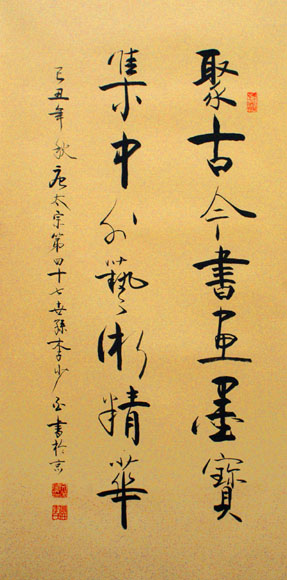 聚古今書画墨寶
集中外藝術精華
己丑年秋唐太宗第四十七世孫李少白書於京